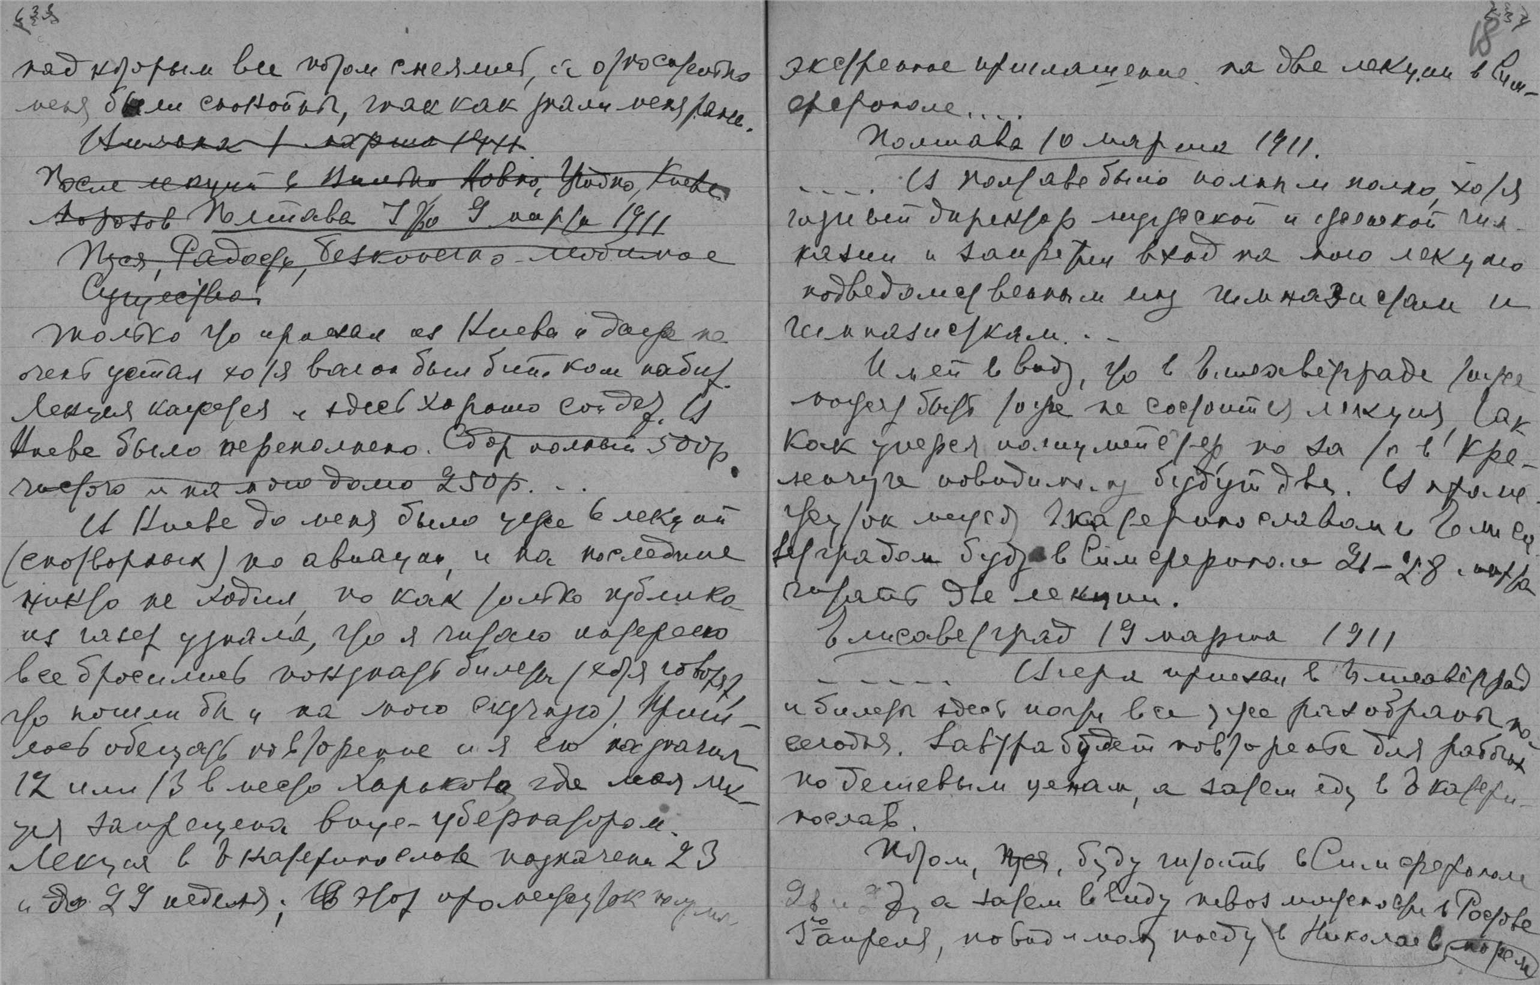 над которым все потом смеялись, а относительно
меня были спокойны, так как знали меня ранее.
Вильна 1 марта 1911
После лекций в Вильно Ковно, Гродно, Киеве
Полтава 9 марта 1911
Пуся, Радость, бесконечно любимое
Существо!
Только что приехал из Киева и даже не
очень устал хотя вагон был битком набит.
Лекция кажется и здесь хорошо сойдет. В
Киеве было переполнено. Сбор полный 500р.
чистого и на мою долю 250р. . .
В Киеве до меня было уже 6 лекций
по авиации, и на последние
никто не ходил, но как только публика
из газет узнала, что я читаю интересно
все бросились покупать билеты (хотя говорят,
что пошли бы и на мою скучную). Приш-
лось обещать повторение и я его назначил
12 или 13 вместо Харькова, где моя лек-
ция запрещена вице-губернатором.
Лекция в Екатеринославе назначена 23
и до 29 неделя; В этот промежуток получил
18
экстренное приглашение на две лекции в Сим-
ферополе....
Полтава 10 марта 1911.
. . . . В Полтаве было полным полно, хотя
директор мужской и женской гим-
назии и запретил вход на мою лекцию
подведомственным ему гимназистам и
гимназисткам. . .
Имей в виду, что в Елисаветграде тоже
может быть тоже не состоится лекция, так
как уперся полицмейстер но за то в Кре-
менчуге повидимому будут две. В проме-
жуток между Екатеринославом и Елиса
ветградом буду в Симферополе 21-28 марта
читать две лекции.
Елисаветград 19 марта 1911
. . . . . Вчера приехал в Елисаветград
и билеты здесь почти все уже разобраны на
сегодня. Завтра будет повторение для рабочих
по дешевым ценам, а затем еду в Екатери-
нослав.
Потом, Пуся, буду читать в Симферополе
а затем в виду невозможности в Ростове
5го апреля, повидимому поеду в Николаев морем